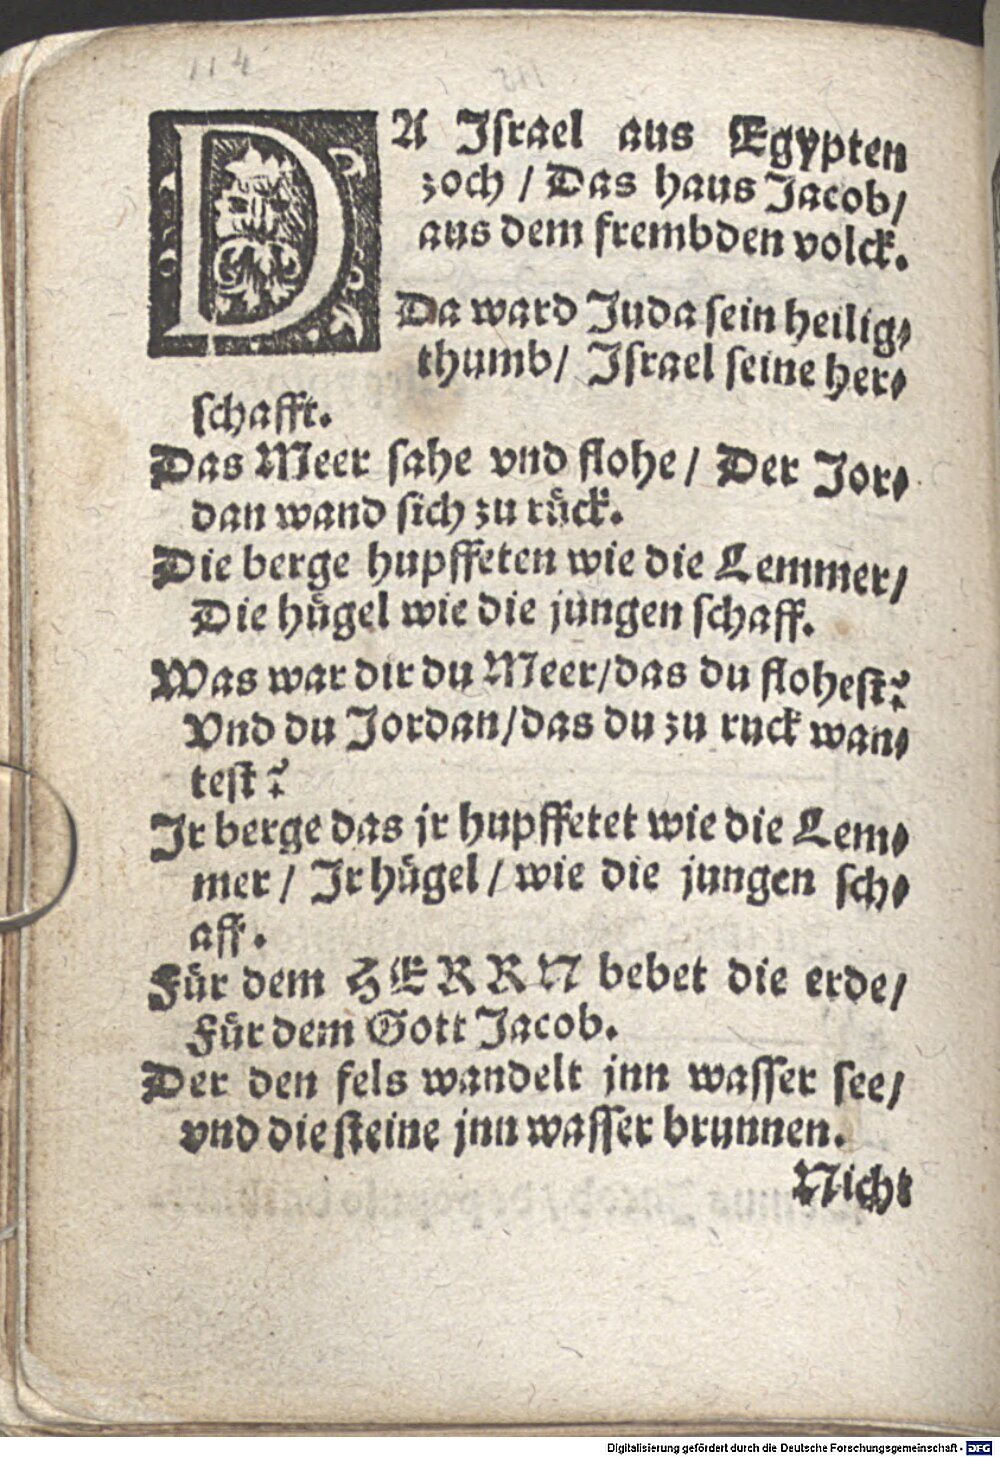 114
DA Iſrael aus Egypten
zoch / Das haus Jacob /
aus dem frembden volck.
Da ward Juda ſein heilig⸗
thumb / Iſrael ſeine her⸗
ſchafft.
Das Meer ſahe vnd flohe / Der Jor⸗
dan wand ſich zu ruͤck.
Die berge hupffeten wie die Lemmer /
Die huͤgel wie die jungen ſchaff.
Was war dir du Meer / das du floheſt?
Vnd du Jordan / das du zu ruck wan⸗
teſt?
Ir berge das jr hupffetet wie die Lem⸗
mer / Ir huͤgel / wie die jungen ſch⸗
aff.
Fuͤr dem HERRN bebet die erde /
Fuͤr dem Gott Jacob.
Der den fels wandelt jnn waſſer ſee /
vnd die ſteine jnn waſſer brunnen.
Nicht
Digitalisierung gefördert durch die Deutsche Forschungsgemeinschaft - DFG